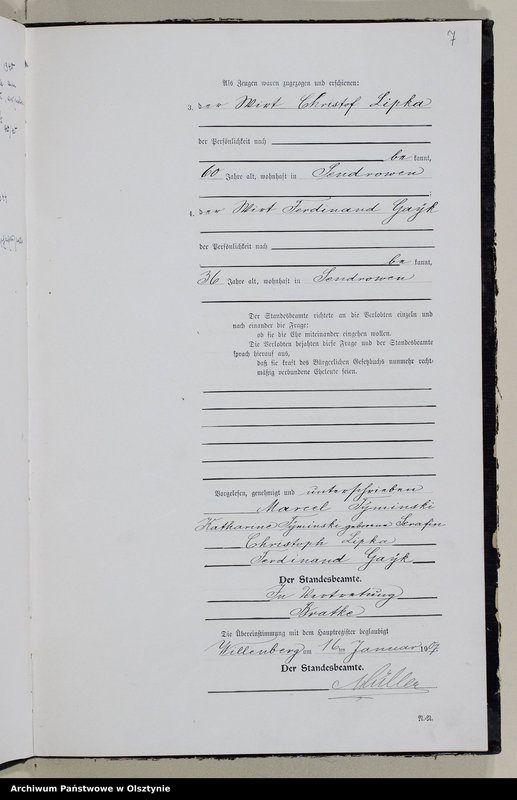 7
Als Zeugen waren zugezogen und erschienen:
3. der Wirt Christof Lipka
der Persönlichkeit nach
be kannt,
60 Jahre alt, wohnhaft in Sendrowen
;
4. der Wirt Ferdinand Gayk
der Persönlichkeit nach
be kannt,
36 Jahre alt, wohnhaft in Sendrowen
Der Standesbeamte richtete an die Verlobten einzeln und
nach einander die Frage:
ob sie die Ehe miteinander eingehen wollen.
Die Verlobten bejahten diese Frage und der Standesbeamte
sprach hierauf aus,
daß sie kraft des Bürgerlichen Gesetzbuchs nunmehr recht-
mäßig verbundene Eheleute seien.
Vorgelesen, genehmigt und unterschrieben
Marcel Tyminski
Katharine Tyminski geborene Serafin
Christoph Lipka
Ferdinand Gayk
Der Standesbeamte.
In Vertretung
Bratke
Die Übereinstimmung mit dem Hauptregister beglaubigt
Willenberg am 16ten Januar 19
Der Standesbeamte.
Müller
Archiwum Państwowe w Olsztynie